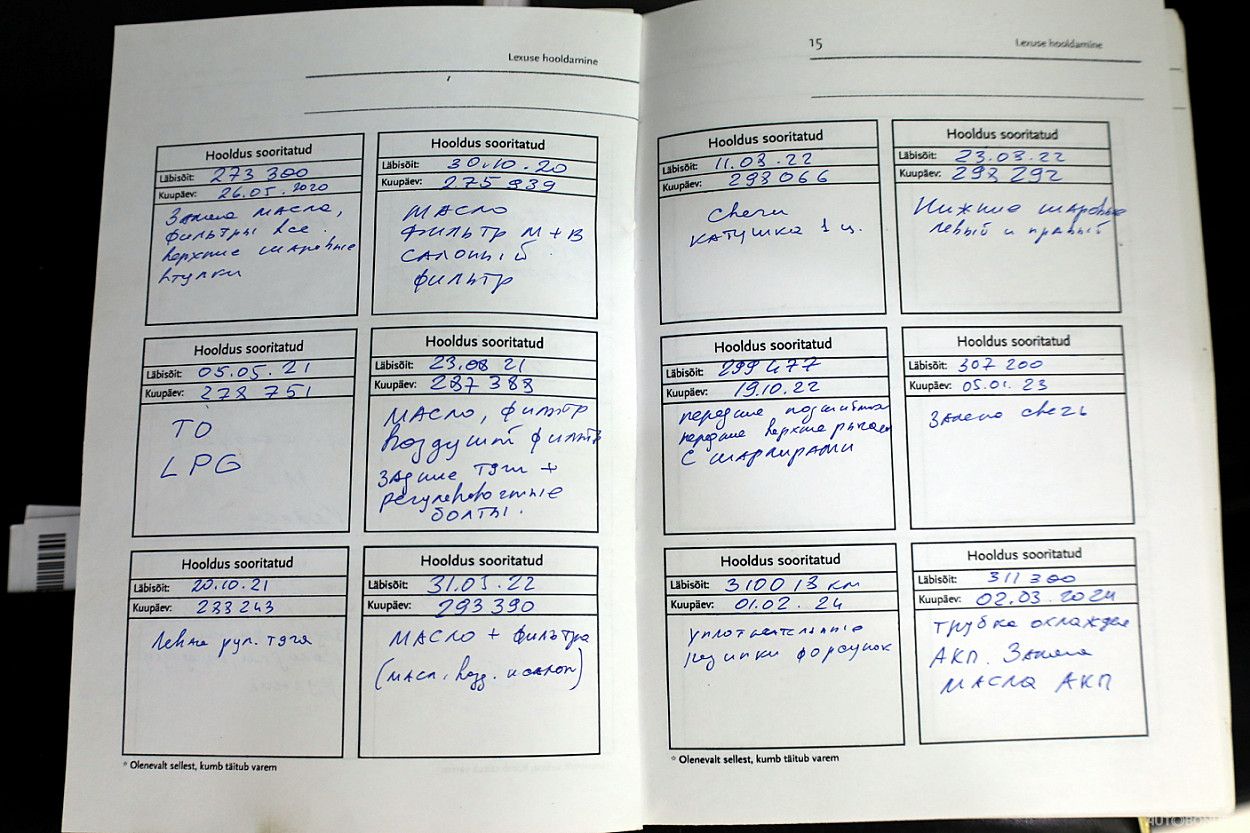 Lexuse hooldamine
Hooldus sooritatud
Läbisõit: 273 300
Kuupäev: 26.05.2020
Замена масла,
фильтры все.
верхние шаровые
втулки
Hooldus sooritatud
Läbisõit: 30.10.20
Kuupäev: 275 939
МАСЛО
ФИЛЬТР М+В
САЛОНЫЙ
ФИЛЬТР
Hooldus sooritatud
Läbisõit: 05.05.21
Kuupäev: 278 751
ТО
LPG
Hooldus sooritatud
Läbisõit: 23.08 21
Kuupäev: 287 388
МАСЛО, фильтр
Воздушый фильтр
задние тяги +
регулировочные
болты.
Hooldus sooritatud
Läbisõit: 20.10.21
Kuupäev: 288 243
Левая рул. тяга
Hooldus sooritatud
Läbisõit: 31.05.22
Kuupäev: 293 390
МАСЛО + фильтра
(масл. возд. и салон)
* Olenevalt sellest, kumb täitub varem
15
Lexuse hooldamine
Hooldus sooritatud
Läbisõit: 11.08.22
Kuupäev: 298 066
Свечи
КАТУШКА 1 ц.
Hooldus sooritatud
Läbisõit: 23.08.22
Kuupäev: 298 292
Нижние шаровые
левый и правый
Hooldus sooritatud
Läbisõit: 299 477
Kuupäev: 19.10.22
передние
передние верхние рычаги
С ШАРНИРАМИ
Hooldus sooritatud
Läbisõit: 307 200
Kuupäev: 05.01.23
Замена свечь
Hooldus sooritatud
Läbisõit: 310013 км
Kuupäev: 01.02.24
уплотнительные
резинки форсунок
Hooldus sooritatud
Läbisõit: 311 300
Kuupäev: 02.03.2024
трубка охлажде
АКП. Замена
МАСЛА АКП
* Olenevalt sellest, kumb täitub varem